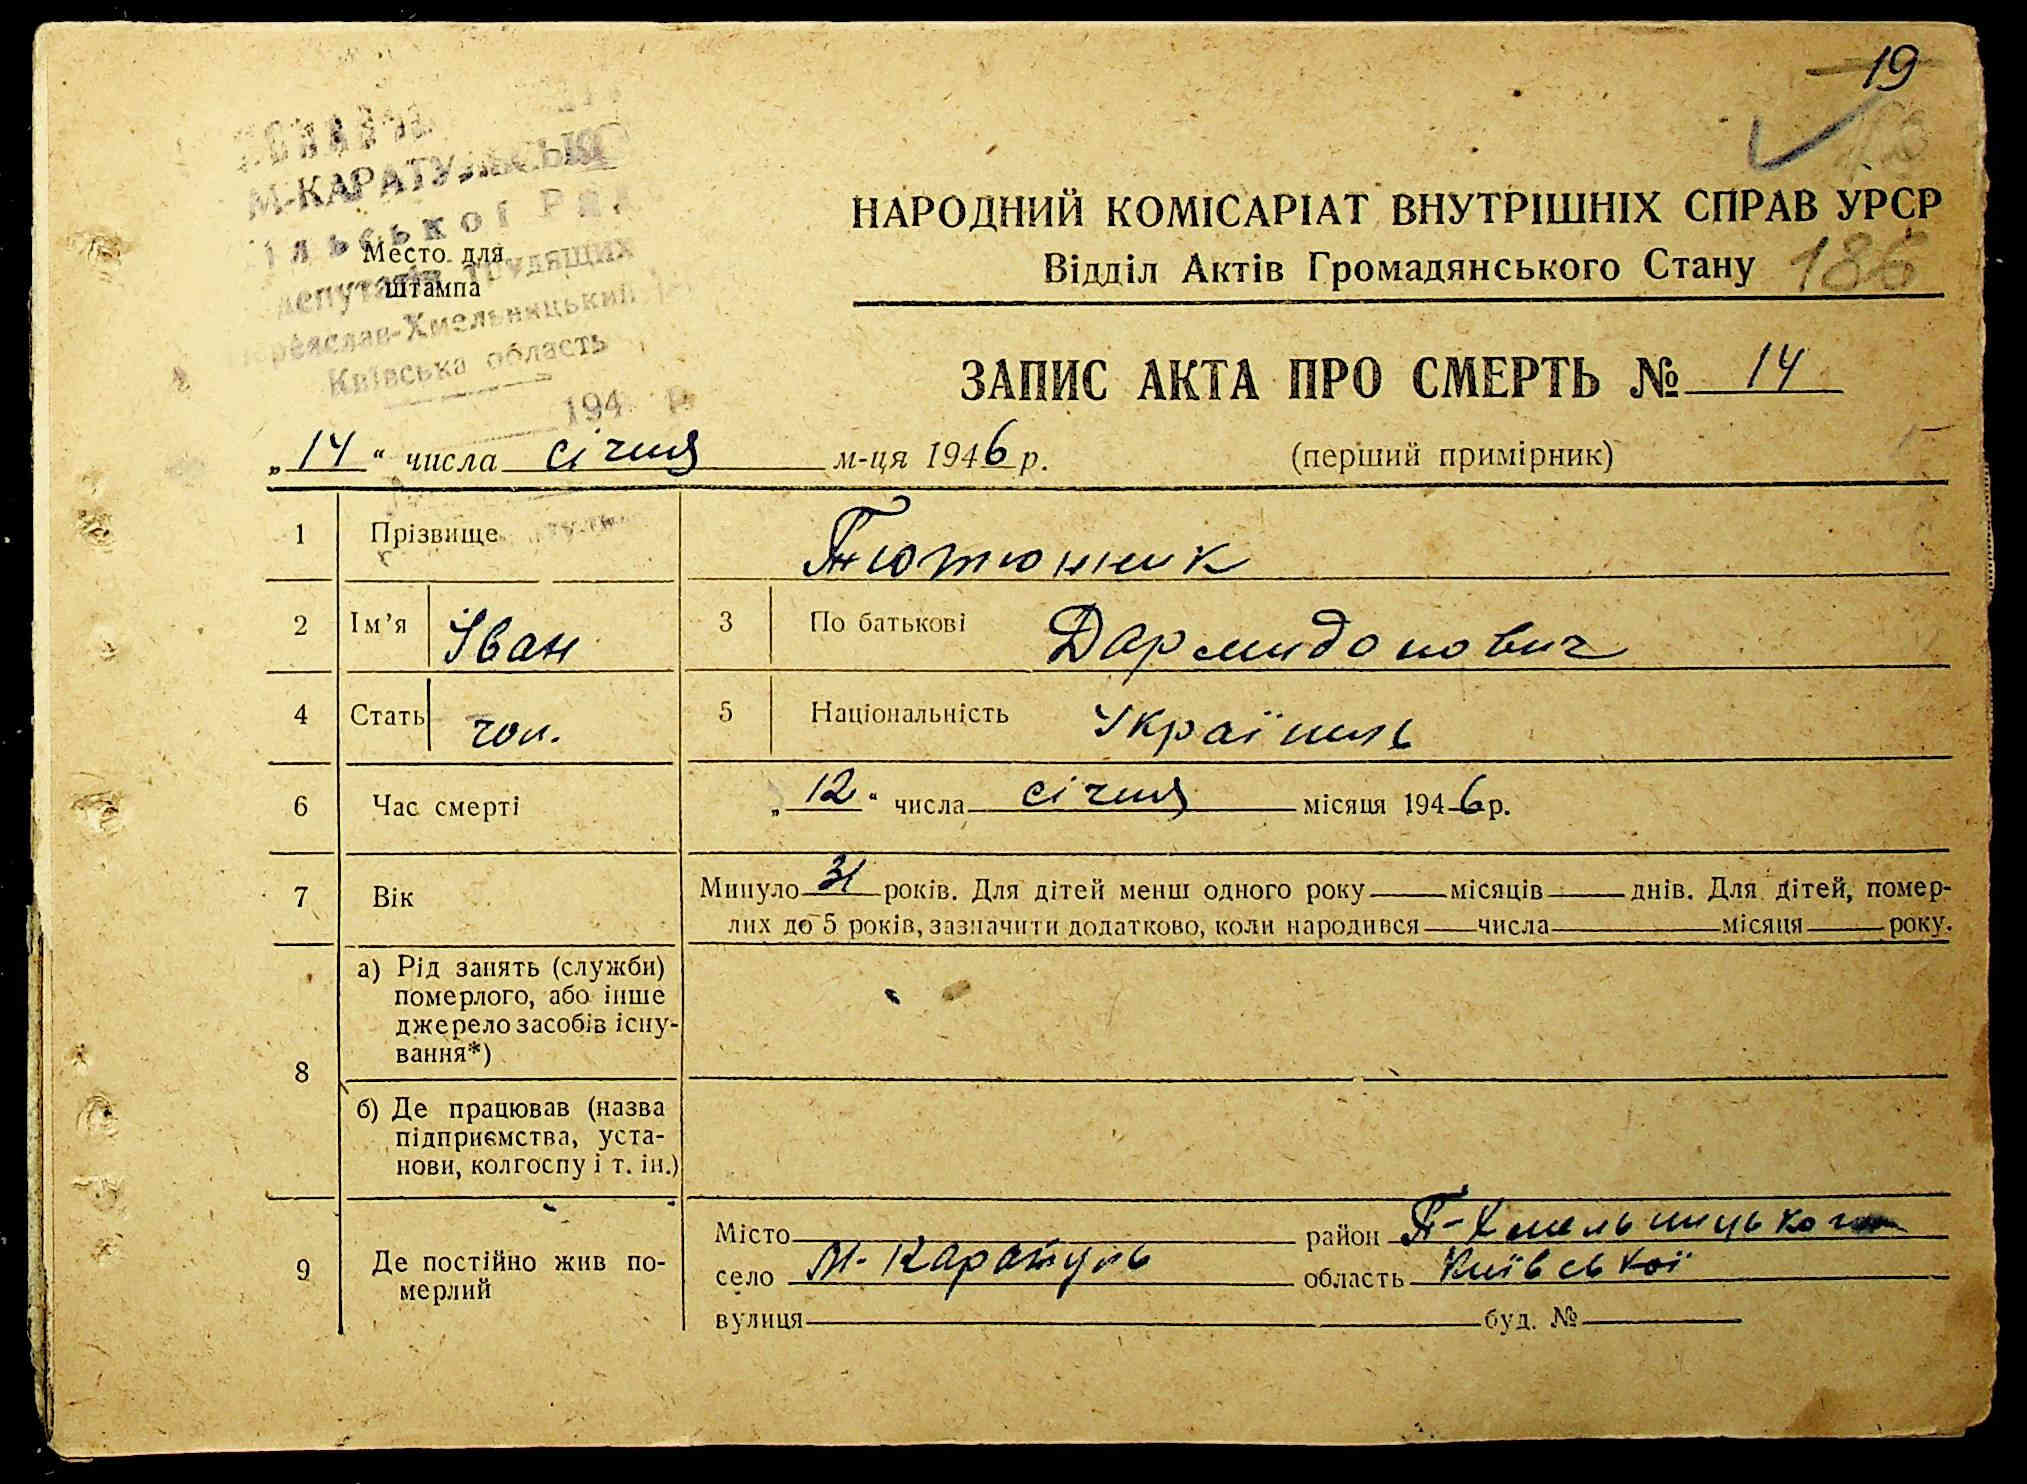 19
М-КАРАТУЛЬСЬКО
ільської Ра
Место для
депутатів трудящих
штампа
Переяслав-Хмельницький
Київська область
194 р
НАРОДНИЙ КОМІСАРІАТ ВНУТРІШНІХ СПРАВ УРСР
Відділ Актів Громадянського Стану 186
ЗАПИС АКТА ПРО СМЕРТЬ № 14
„14“ числа січня м-ця 1946 р. (перший примірник)
1 Прізвище Тютюнник
2 Ім’я Іван 3 По батькові Дармидонович
4 Стать чол. 5 Національність Українець
6 Час смерті „12“ числа січня місяця 1946 р.
7 Вік Минуло 31 років. Для дітей менш одного року місяців днів. Для дітей, помер-
лих до 5 років, зазначити додатково, коли народився числа місяця року.
8 а) Рід занять (служби)
померлого, або інше
джерело засобів існу-
вання*)
б) Де працював (назва
підприємства, уста-
нови, колгоспу і т. ін.)
9 Де постійно жив по-
мерлий
Місто район П-Хмельницького
село М-Каратуль область Київської
вулиця буд. №